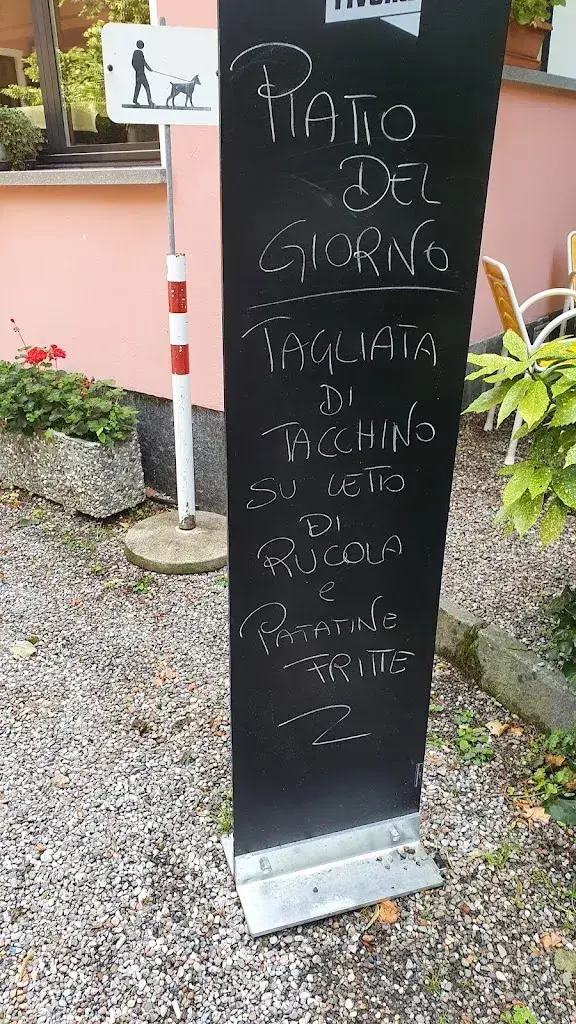 PIATTO
DEL
GIORNO
TAGLIATA
DI
TACCHINO
SU LETTO
DI
RUCOLA
e
PATATINE
FRITTE